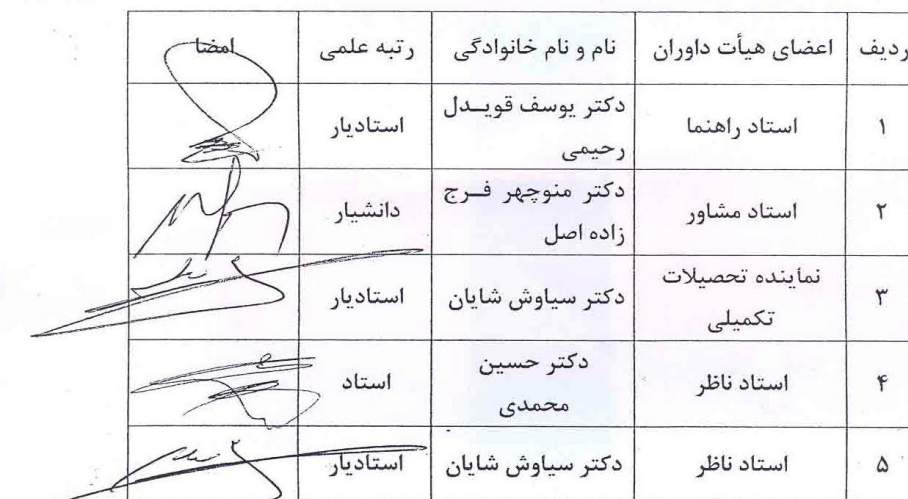 ردیف اعضای هیأت داوران نام و نام خانوادگی رتبه علمی امضا
۱ استاد راهنما دکتر یوسف قویـدل رحیمی استادیار
۲ استاد مشاور دکتر منوچهر فـرج زاده اصل دانشیار
۳ نماینده تحصیلات تکمیلی دکتر سیاوش شایان استادیار
۴ استاد ناظر دکتر حسین محمدی استاد
۵ استاد ناظر دکتر سیاوش شایان استادیار